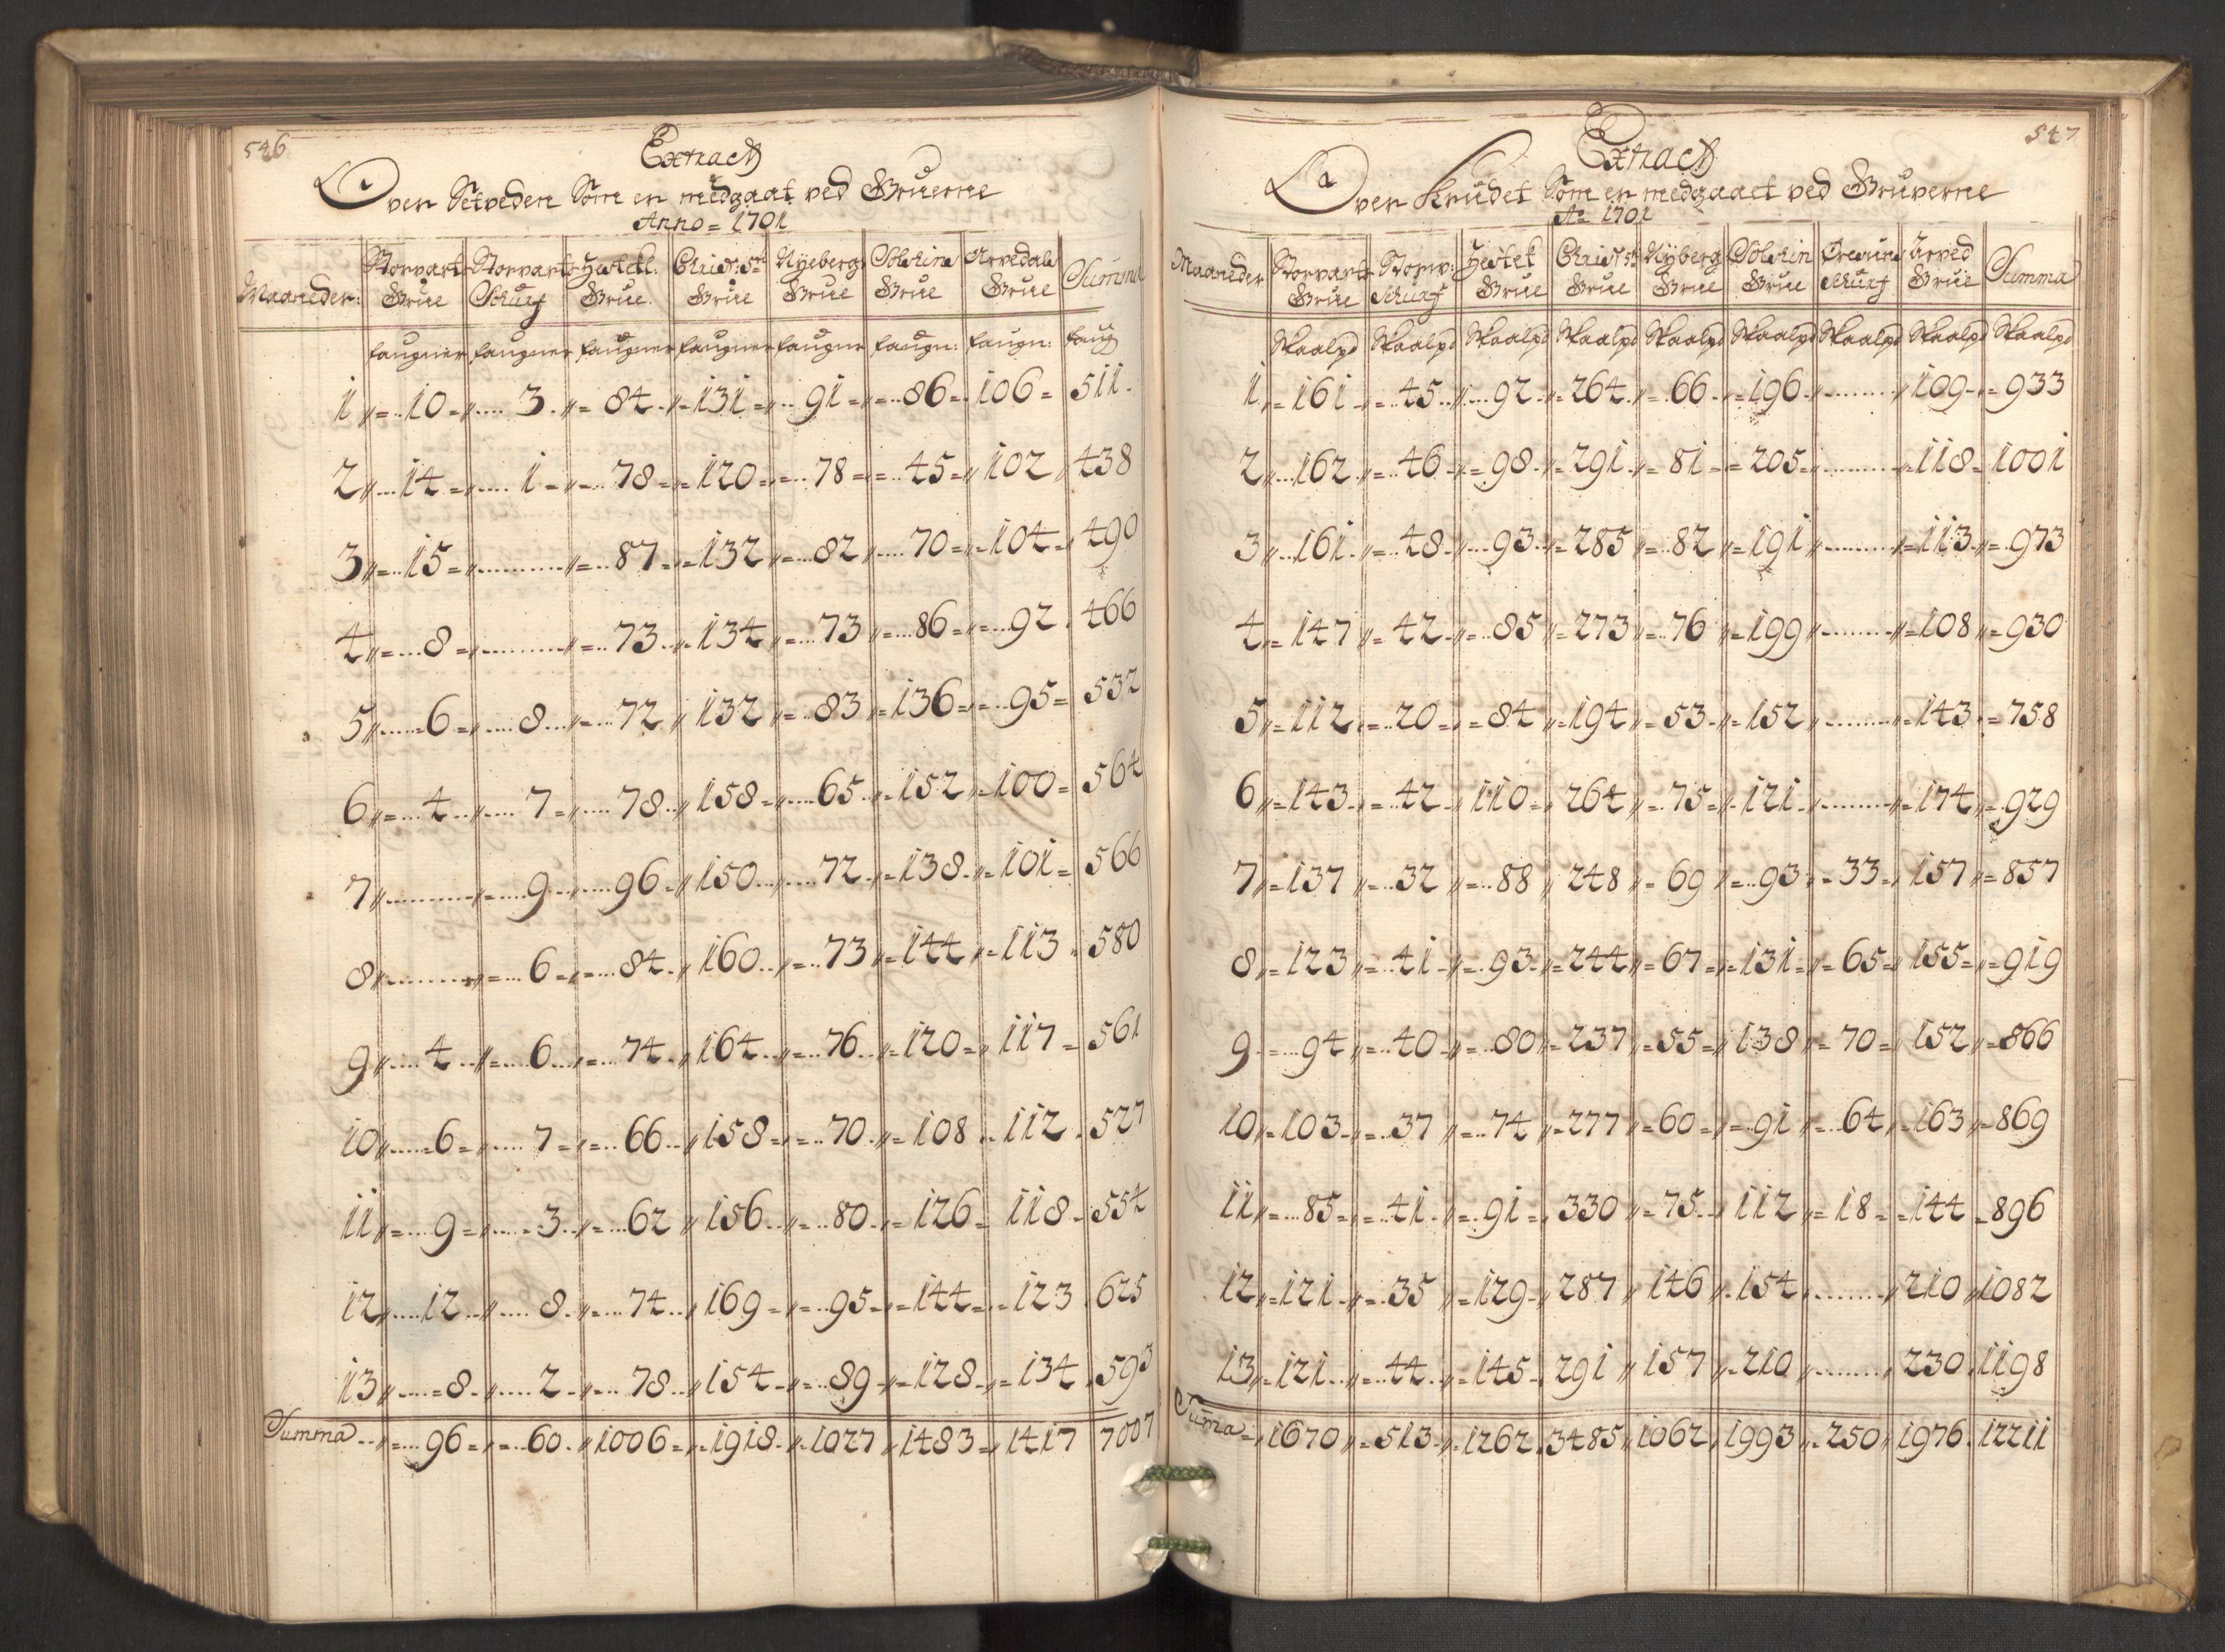 546
Extract
Over Setveden Som er medgaat ved Gruerne
Anno = 1701
Maaneder: Storvarts Grue Storvarts Schurf Hestkl. Grue Christ: 5ti Grue Nyeberg Grue Solskins Grue Arvedals Grue Summa
faugner faugner faugner faugner faugne faugn: faugn: faug
1 10 3 84 131 91 86 106 511
2 14 1 78 120 78 45 102 438
3 15 ...... 87 132 82 70 104 490
4 8 ...... 73 134 73 86 92 466
5 6 8 72 132 83 136 95 532
6 4 7 78 158 65 152 100 564
7 ...... 9 96 150 72 138 101 566
8 ...... 6 84 160 73 144 113 580
9 4 6 74 164 76 120 117 561
10 6 7 66 158 70 108 112 527
11 9 3 62 156 80 126 118 554
12 12 8 74 169 95 144 123 625
13 8 2 78 154 89 128 134 593
Summa 96 60 1006 1918 1027 1483 1417 7007
547
Extract
Over Krudet Som er medgaaet ved Gruverne
Ao 1701
Maaneder Storvarts Grue Storv: Schurf Hestkl Grue Christ 5ti Grue Nyberg Grue Solskin Grue Schurf Arved Grue Summa
Skaalpd Skaalpd Skaalpd Skaalpd Skaalpd Skaalpd Skaalpd Skaalpd Skaalpd
1 161 45 92 264 66 196 ...... 109 933
2 162 46 98 291 81 205 ...... 118 1001
3 161 48 93 285 82 191 ...... 113 973
4 147 42 85 273 76 199 ...... 108 930
5 112 20 84 194 53 152 ...... 143 758
6 143 42 110 264 75 121 ...... 174 929
7 137 32 88 248 69 93 33 157 857
8 123 41 93 244 67 131 65 155 919
9 94 40 80 237 55 138 70 152 866
10 103 37 74 277 60 91 64 163 869
11 85 41 91 330 75 112 18 144 896
12 121 35 129 287 146 154 ...... 210 1082
13 121 44 145 291 157 210 ...... 230 1198
Suma 1670 513 1262 3485 1062 1993 250 1976 12211